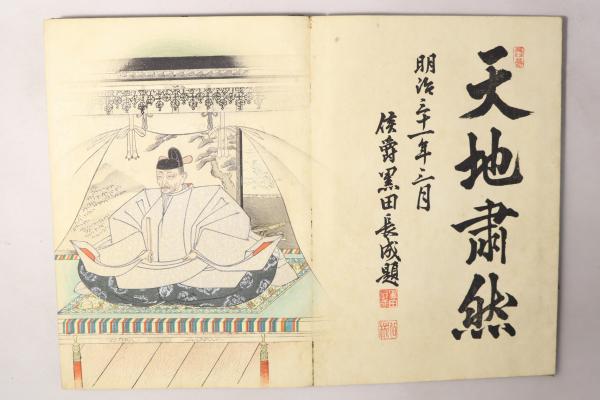 天地肅然
明治三十一年三月
侯爵黒田長成題